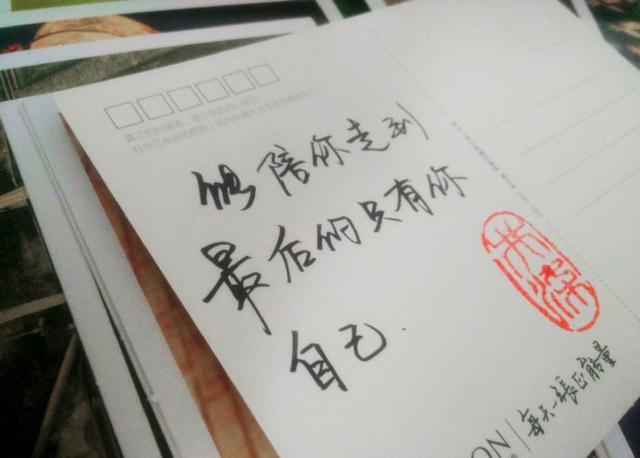 能陪你走到
最后的只有你
自己.
ON | 每天一張正能量